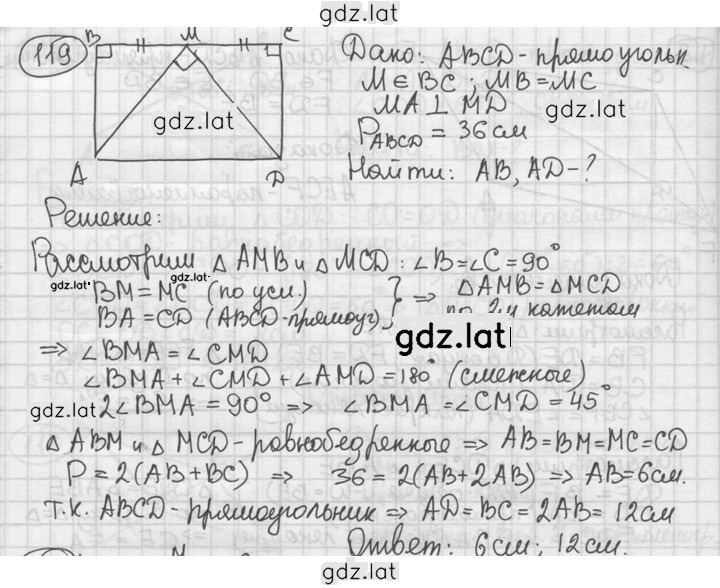 gdz.lat
119
B M C
Дано: ABCD - прямоугольн.
M ∈ BC ; MB = MC
MA ⊥ MD
gdz.lat
P ABCD = 36 см
A D
Найти: AB, AD - ?
Решение:
Рассмотрим △ AMB и △ MCD : ∠B = ∠C = 90°
gdz.lat gdz.lat
BM = MC (по усл.) } ⇒ △ AMB = △ MCD
BA = CD (ABCD - прямоуг.) по 2м катетам
gdz.lat
⇒ ∠BMA = ∠CMD
∠BMA + ∠CMD + ∠AMD = 180° (смежные)
gdz.lat 2∠BMA = 90° ⇒ ∠BMA = ∠CMD = 45°
△ ABM и △ MCD - равнобедренные ⇒ AB = BM = MC = CD
P = 2(AB + BC) ⇒ 36 = 2(AB + 2AB) ⇒ AB = 6 см.
т.к. ABCD - прямоугольник ⇒ AD = BC = 2AB = 12 см
Ответ: 6 см; 12 см.
gdz.lat